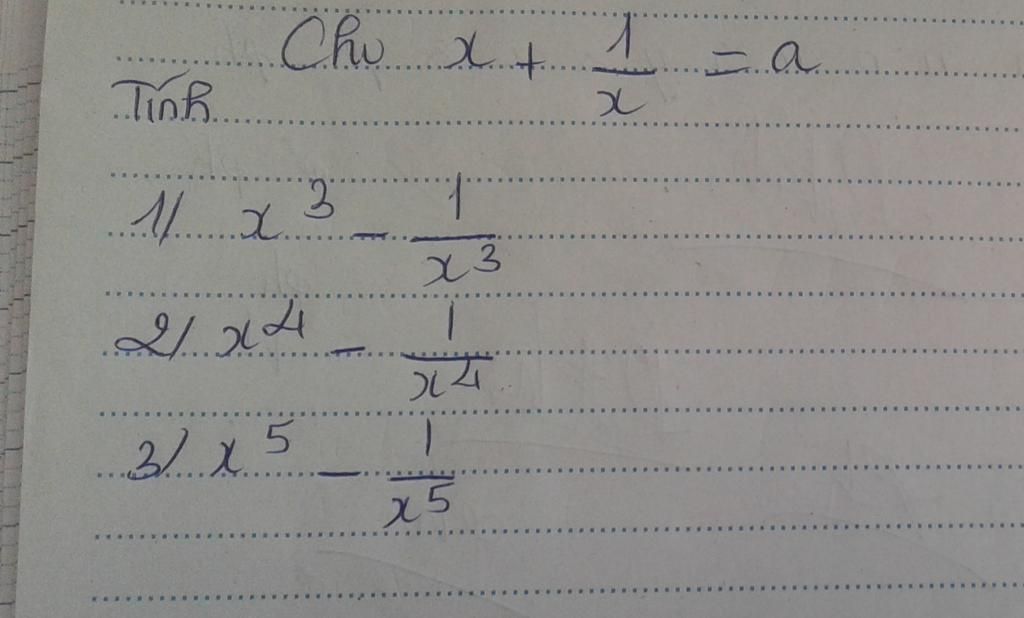 Cho x + 1/x = a
Tính
1/ x³ - 1/x³
2/ x⁴ - 1/x⁴
3/ x⁵ - 1/x⁵